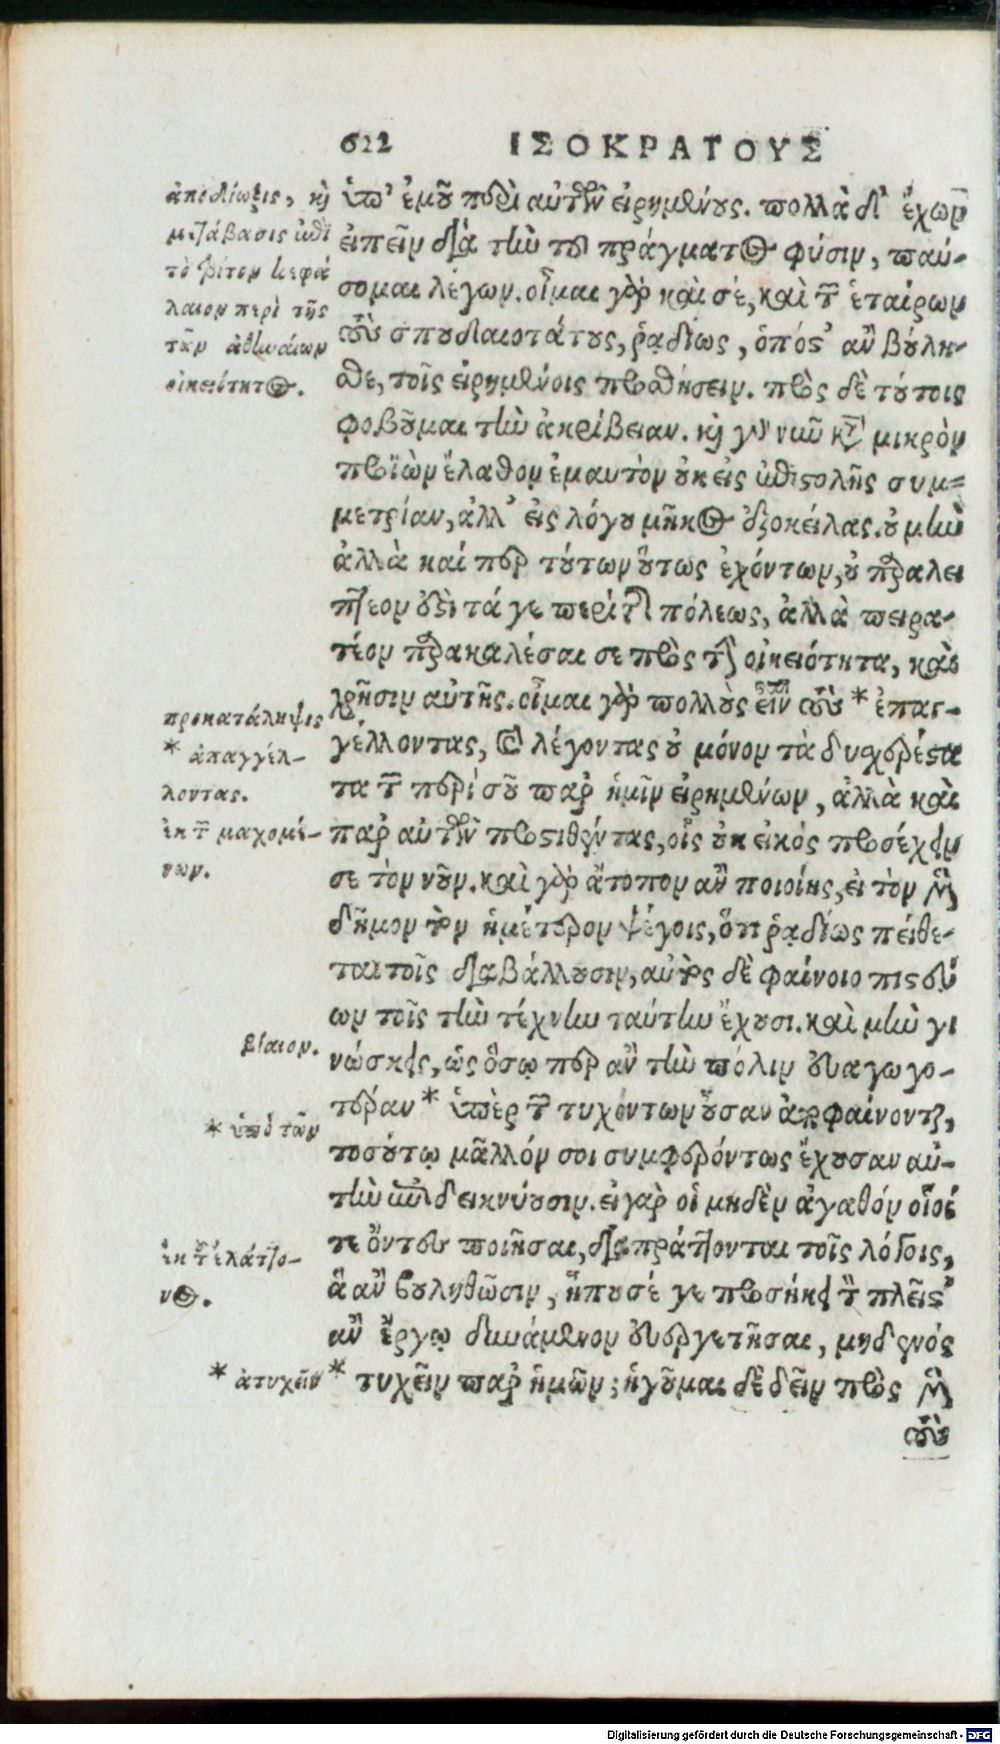 622 ΙΣΟΚΡΑΤΟΥΣ
ἀποδίωξις, καὶ
μετάβασις ἐπὶ
τὸ τρίτον κεφά
λαιον περὶ τῆς
τῶν ἀθηναίων
οἰκειότητος.
ὑπ' ἐμοῦ περὶ αὐτῶν εἰρημένους. πολλὰ δ' ἔχων
εἰπεῖν διὰ τὴν τοῦ πράγματος φύσιν, παύ-
σομαι λέγων. οἶμαι γὰρ καὶ σέ, καὶ τῶν ἑταίρων
τοὺς σπουδαιοτάτους, ῥᾳδίως, ὁπόσ' ἂν βούλη-
σθε, τοῖς εἰρημένοις προσθήσειν. πρὸς δὲ τούτοις
φοβοῦμαι τὴν ἀκρίβειαν. καὶ γὰρ νῦν κατὰ μικρὸν
προϊὼν ἔλαθον ἐμαυτὸν οὐκ εἰς ἐπιστολῆς συμ-
μετρίαν, ἀλλ' εἰς λόγου μῆκος ἐξοκείλας. οὐ μὴν
ἀλλὰ καί περ τούτων οὕτως ἐχόντων, οὐ παραλει
πτέον ἐστὶ τά γε περὶ τῆς πόλεως, ἀλλὰ πειρα-
τέον παρακαλέσαι σε πρὸς τὴν οἰκειότητα, καὶ
χρῆσιν αὐτῆς. οἶμαι γὰρ πολλοὺς εἶναι τοὺς * ἐπαγ-
γέλλοντας, καὶ λέγοντας οὐ μόνον τὰ δυσχερέστα
τα τῶν περί σοῦ παρ' ἡμῖν εἰρημένων, ἀλλὰ καὶ
παρ' αὐτῶν προστιθέντας, οἷς οὐκ εἰκὸς προσέχειν
σε τὸν νοῦν. καὶ γὰρ ἄτοπον ἂν ποιοίης, εἰ τὸν μὲν
δῆμον τὸν ἡμέτερον ψέγοις, ὅτι ῥᾳδίως πείθε-
ται τοῖς διαβάλλουσιν, αὐτὸς δὲ φαίνοιο πιστεύ
ων τοῖς τὴν τέχνην ταύτην ἔχουσι. καὶ μὴν γι
νώσκεις, ὡς ὅσῳ περ ἂν τὴν πόλιν εὐαγωγο-
τέραν * ὑπὲρ τῶν τυχόντων οὖσαν ἀποφαίνονται,
τοσούτῳ μᾶλλόν σοι συμφερόντως ἔχουσαν αὐ-
τὴν ἐπιδεικνύουσιν. εἰ γὰρ οἱ μηδὲν ἀγαθόν οἷοί
τε ὄντες ποιῆσαι, διαπράττονται τοῖς λόγοις,
ἃ ἂν βουληθῶσιν, ἦπου σέ γε προσήκει τὸν πλεῖστ'
ἂν ἔργῳ δυνάμενον εὐεργετῆσαι, μηδενός
* τυχεῖν παρ' ἡμῶν; ἡγοῦμαι δὲ δεῖν πρὸς μὲν
τοὺς
προκατάληψις
* ἀπαγγέλ-
λοντας.
ἐκ τῶν μαχομέ-
νων.
βίαιον.
* ὑπὸ τῶν
ἐκ τοῦ ἐλάττο-
νος.
* ἀτυχεῖν
Digitalisierung gefördert durch die Deutsche Forschungsgemeinschaft - DFG